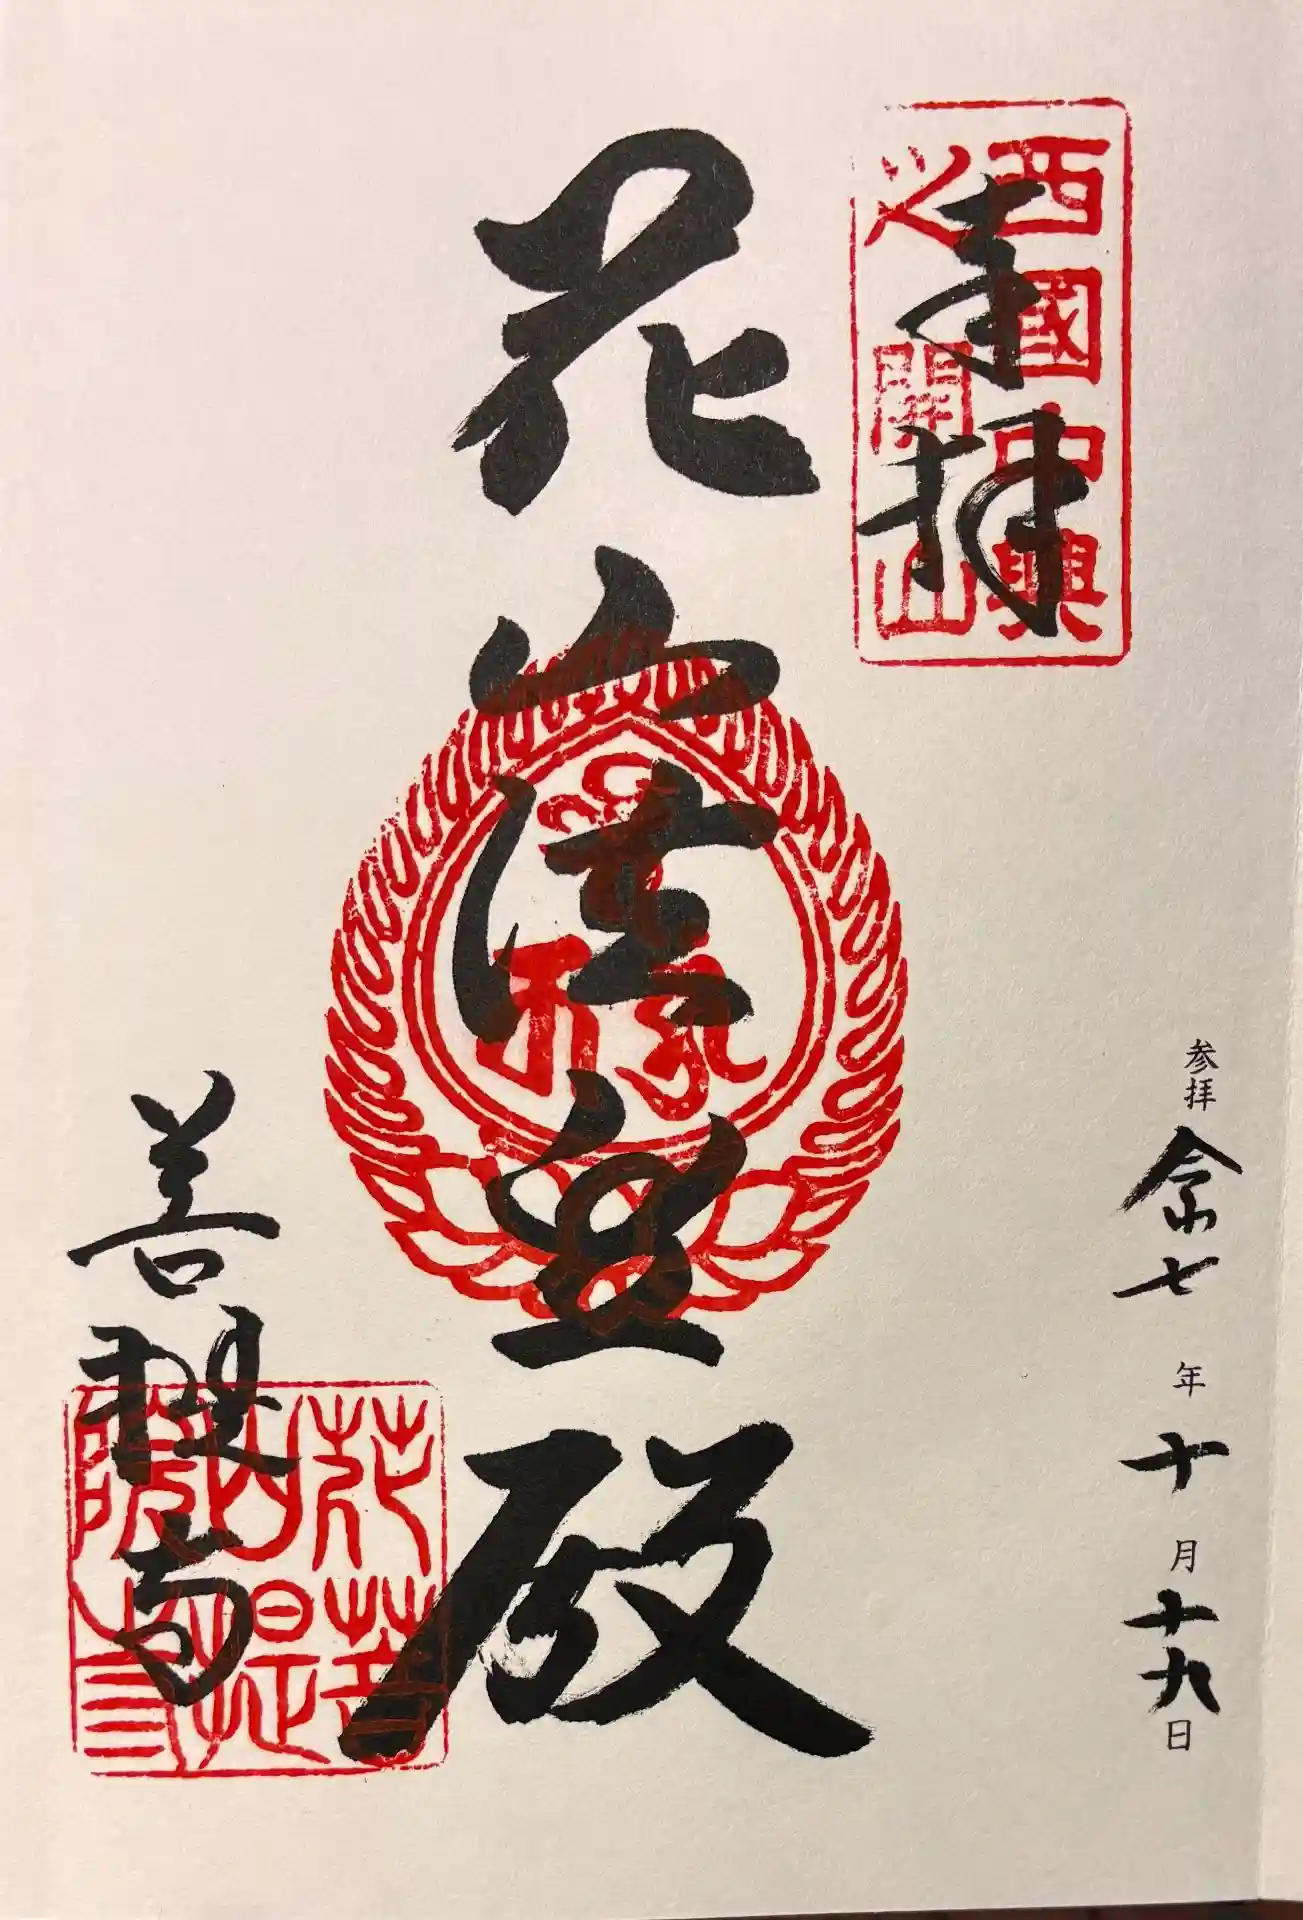 西國中興
之開山
奉拝
参拝 令和七年十月十九日
花山法皇殿
菩提寺
花山院
菩提寺